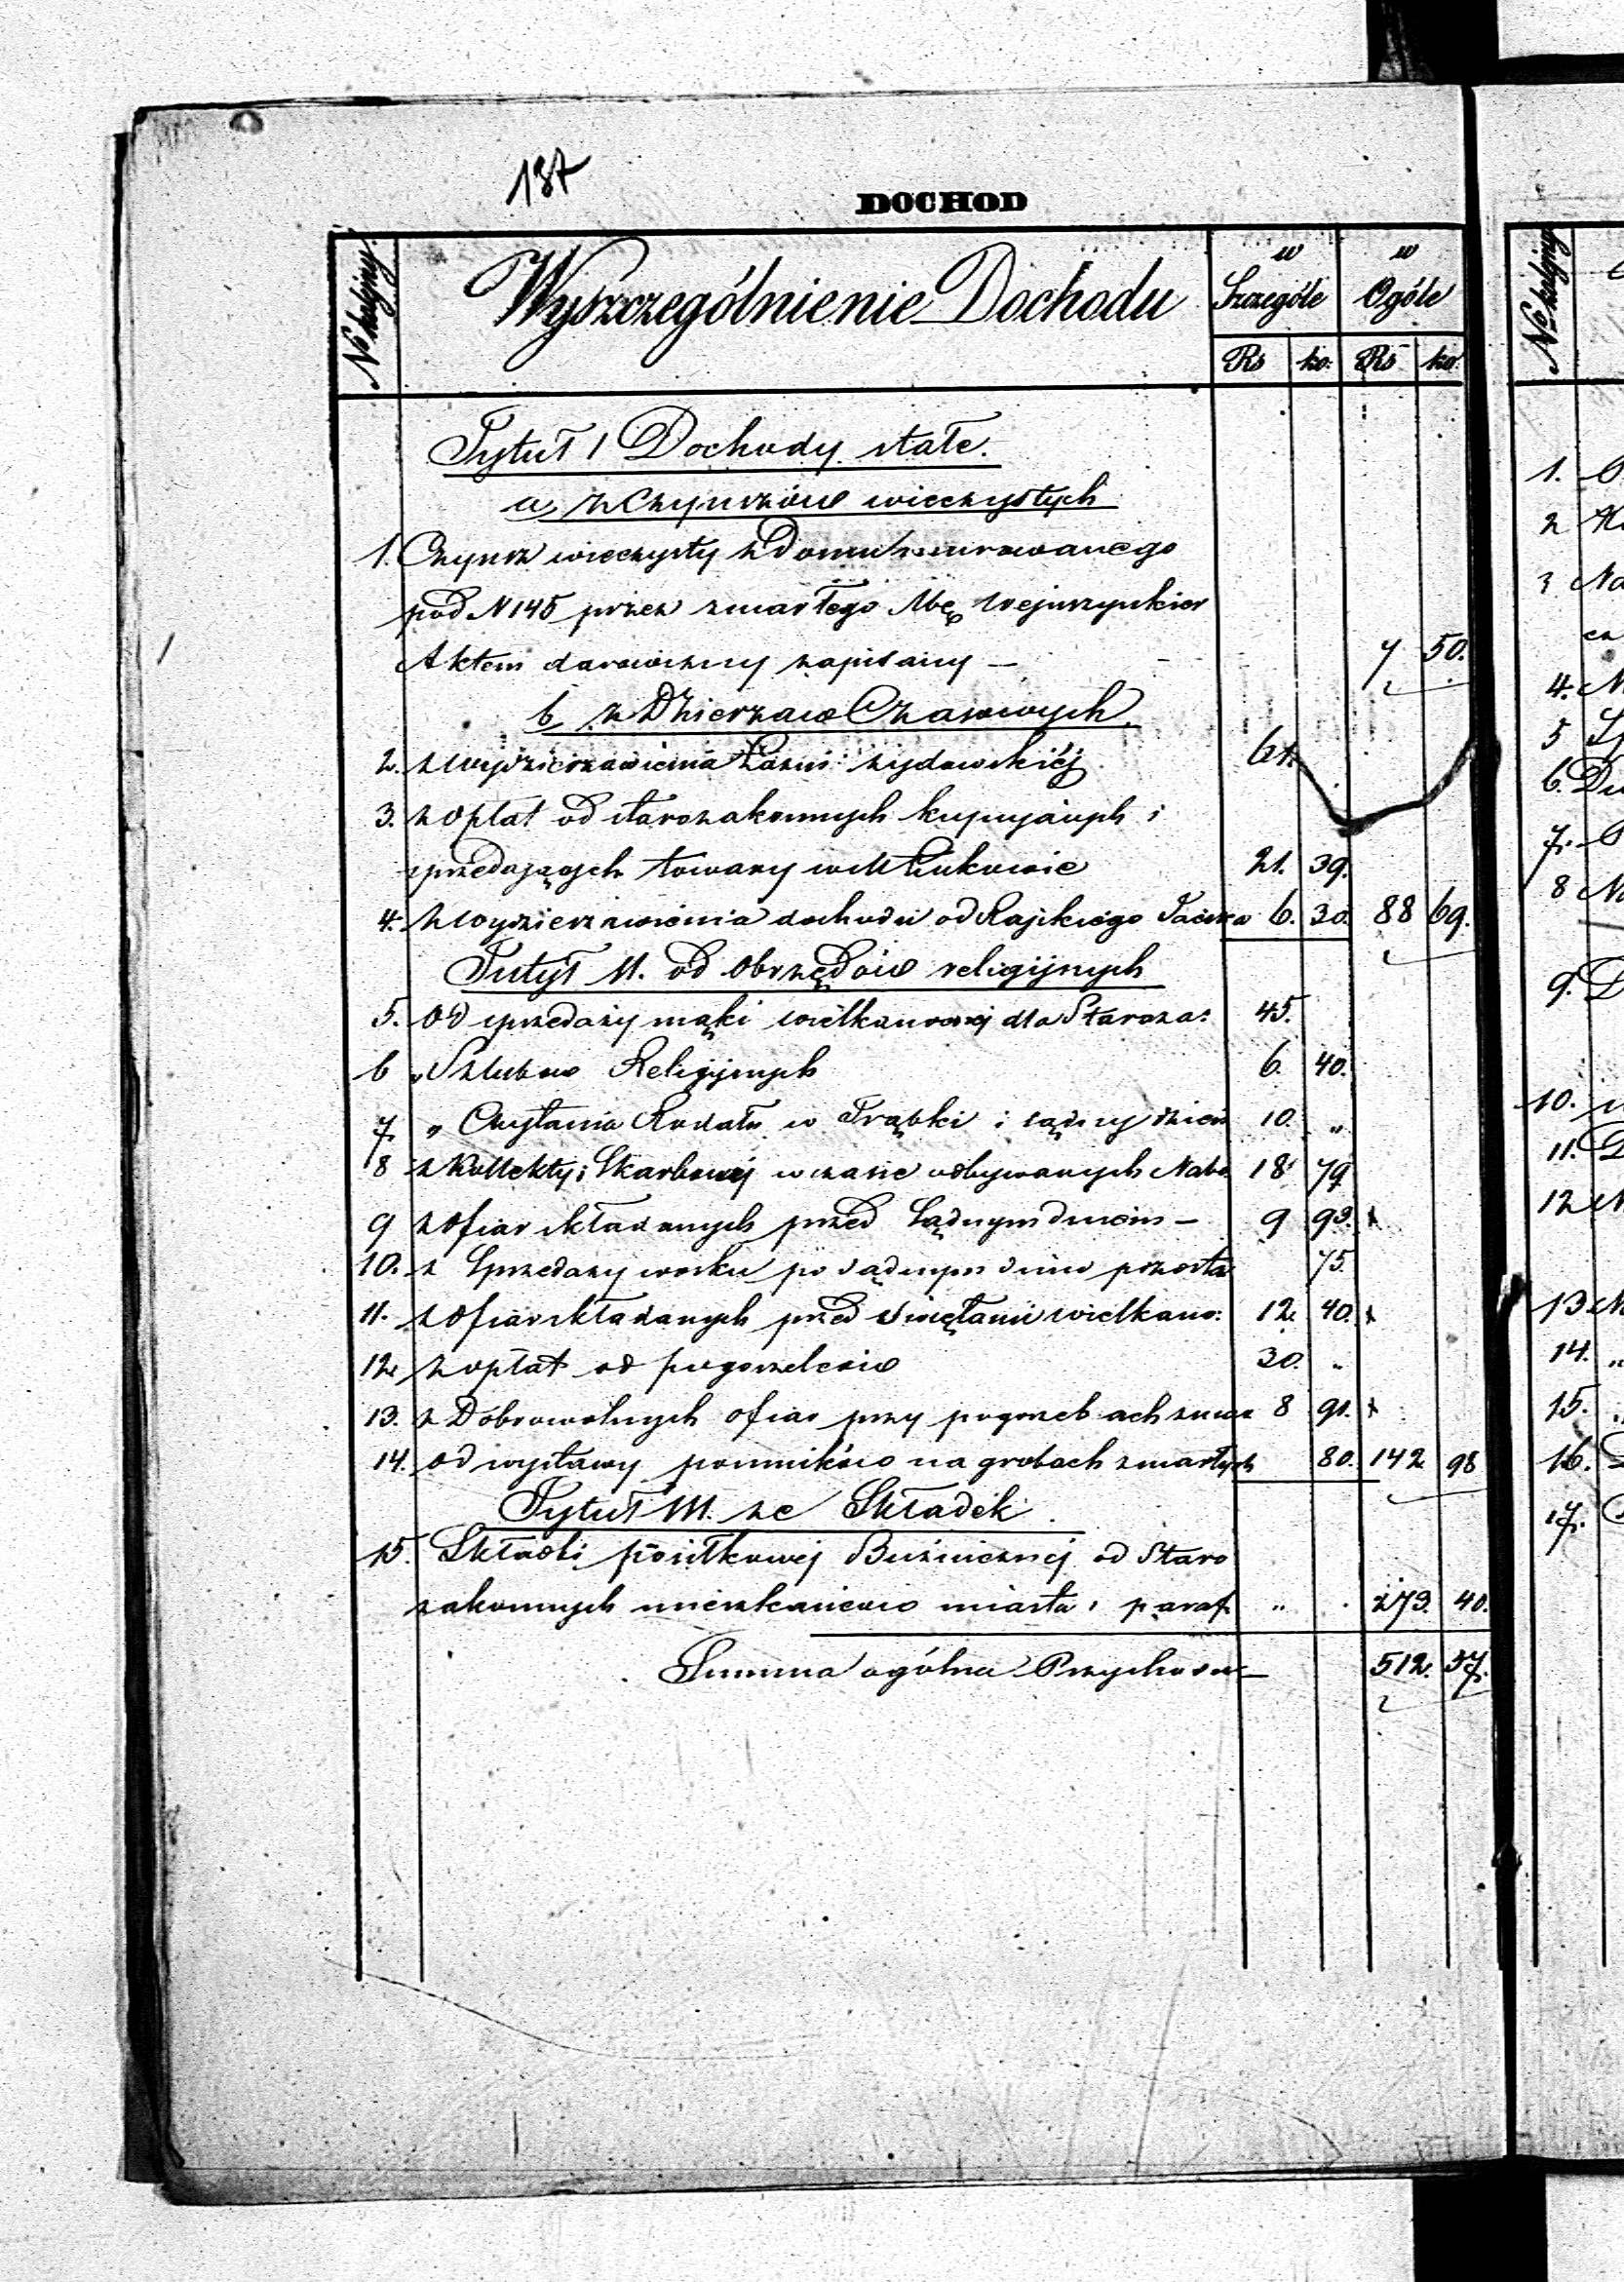 137
DOCHOD
No kolejny
Wyszczególnienie Dochodu
w Szczególe
w Ogóle
Rs ko. Rs ko.
Tytuł I Dochody stałe.
a, z Czynszów wieczystych
1. Czynsz wieczysty z Domu murowanego
pod N 145 przez zmarłego
Aktem darowizny zapisany — 7 50.
b, z Dzierzaw Czasowych
2. z wydzierzawienia Łazni zydowskiéj
3. z opłat od starozakonnych kupujących i
sprzedających towary w M Łukowie 21. 39.
4. z wydzierzawienia dochodu od Rajskiego 6. 30. 88 69.
Tutył II. od Obrzędów religijnych
5. Od sprzedaży mąki wielkanocnej dla Staroza: 45.
6 „ Szlubow Religijnych 6. 40.
7. „ Czytania Rodału w Trąbki i sądny dzień 10. „
8 z Kollekty i Skarbowej w czasie odbywanych Nabo 18 79
9 z ofiar składanych przed Sądnym dniem — 9 93. x
10. z Sprzedaży wosku po sądnym dniu pozosta 75.
11. z ofiar składanych przed Swiętami wielkano: 12. 40. x
12. z opłat od pogrzebów 30. „
13. z Dobrowolnych ofiar przy pogrzebach zmar 8 91. x
14. od wystawy pomników na grobach zmarłych 80. 142. 98
Tytuł III. ze Składek
15. Składki posiłkowej Buznicznej od Staro
zakonnych mieszkańców miasta i paraf. „ . 273. 40.
Summa ogólna Przychodu — 512. 57.
No kolejny
1.
2
3 Na
4. N
5
6.
7.
8 N
9.
10.
11.
12 N
13 N
14. „
15. „
16.
17.